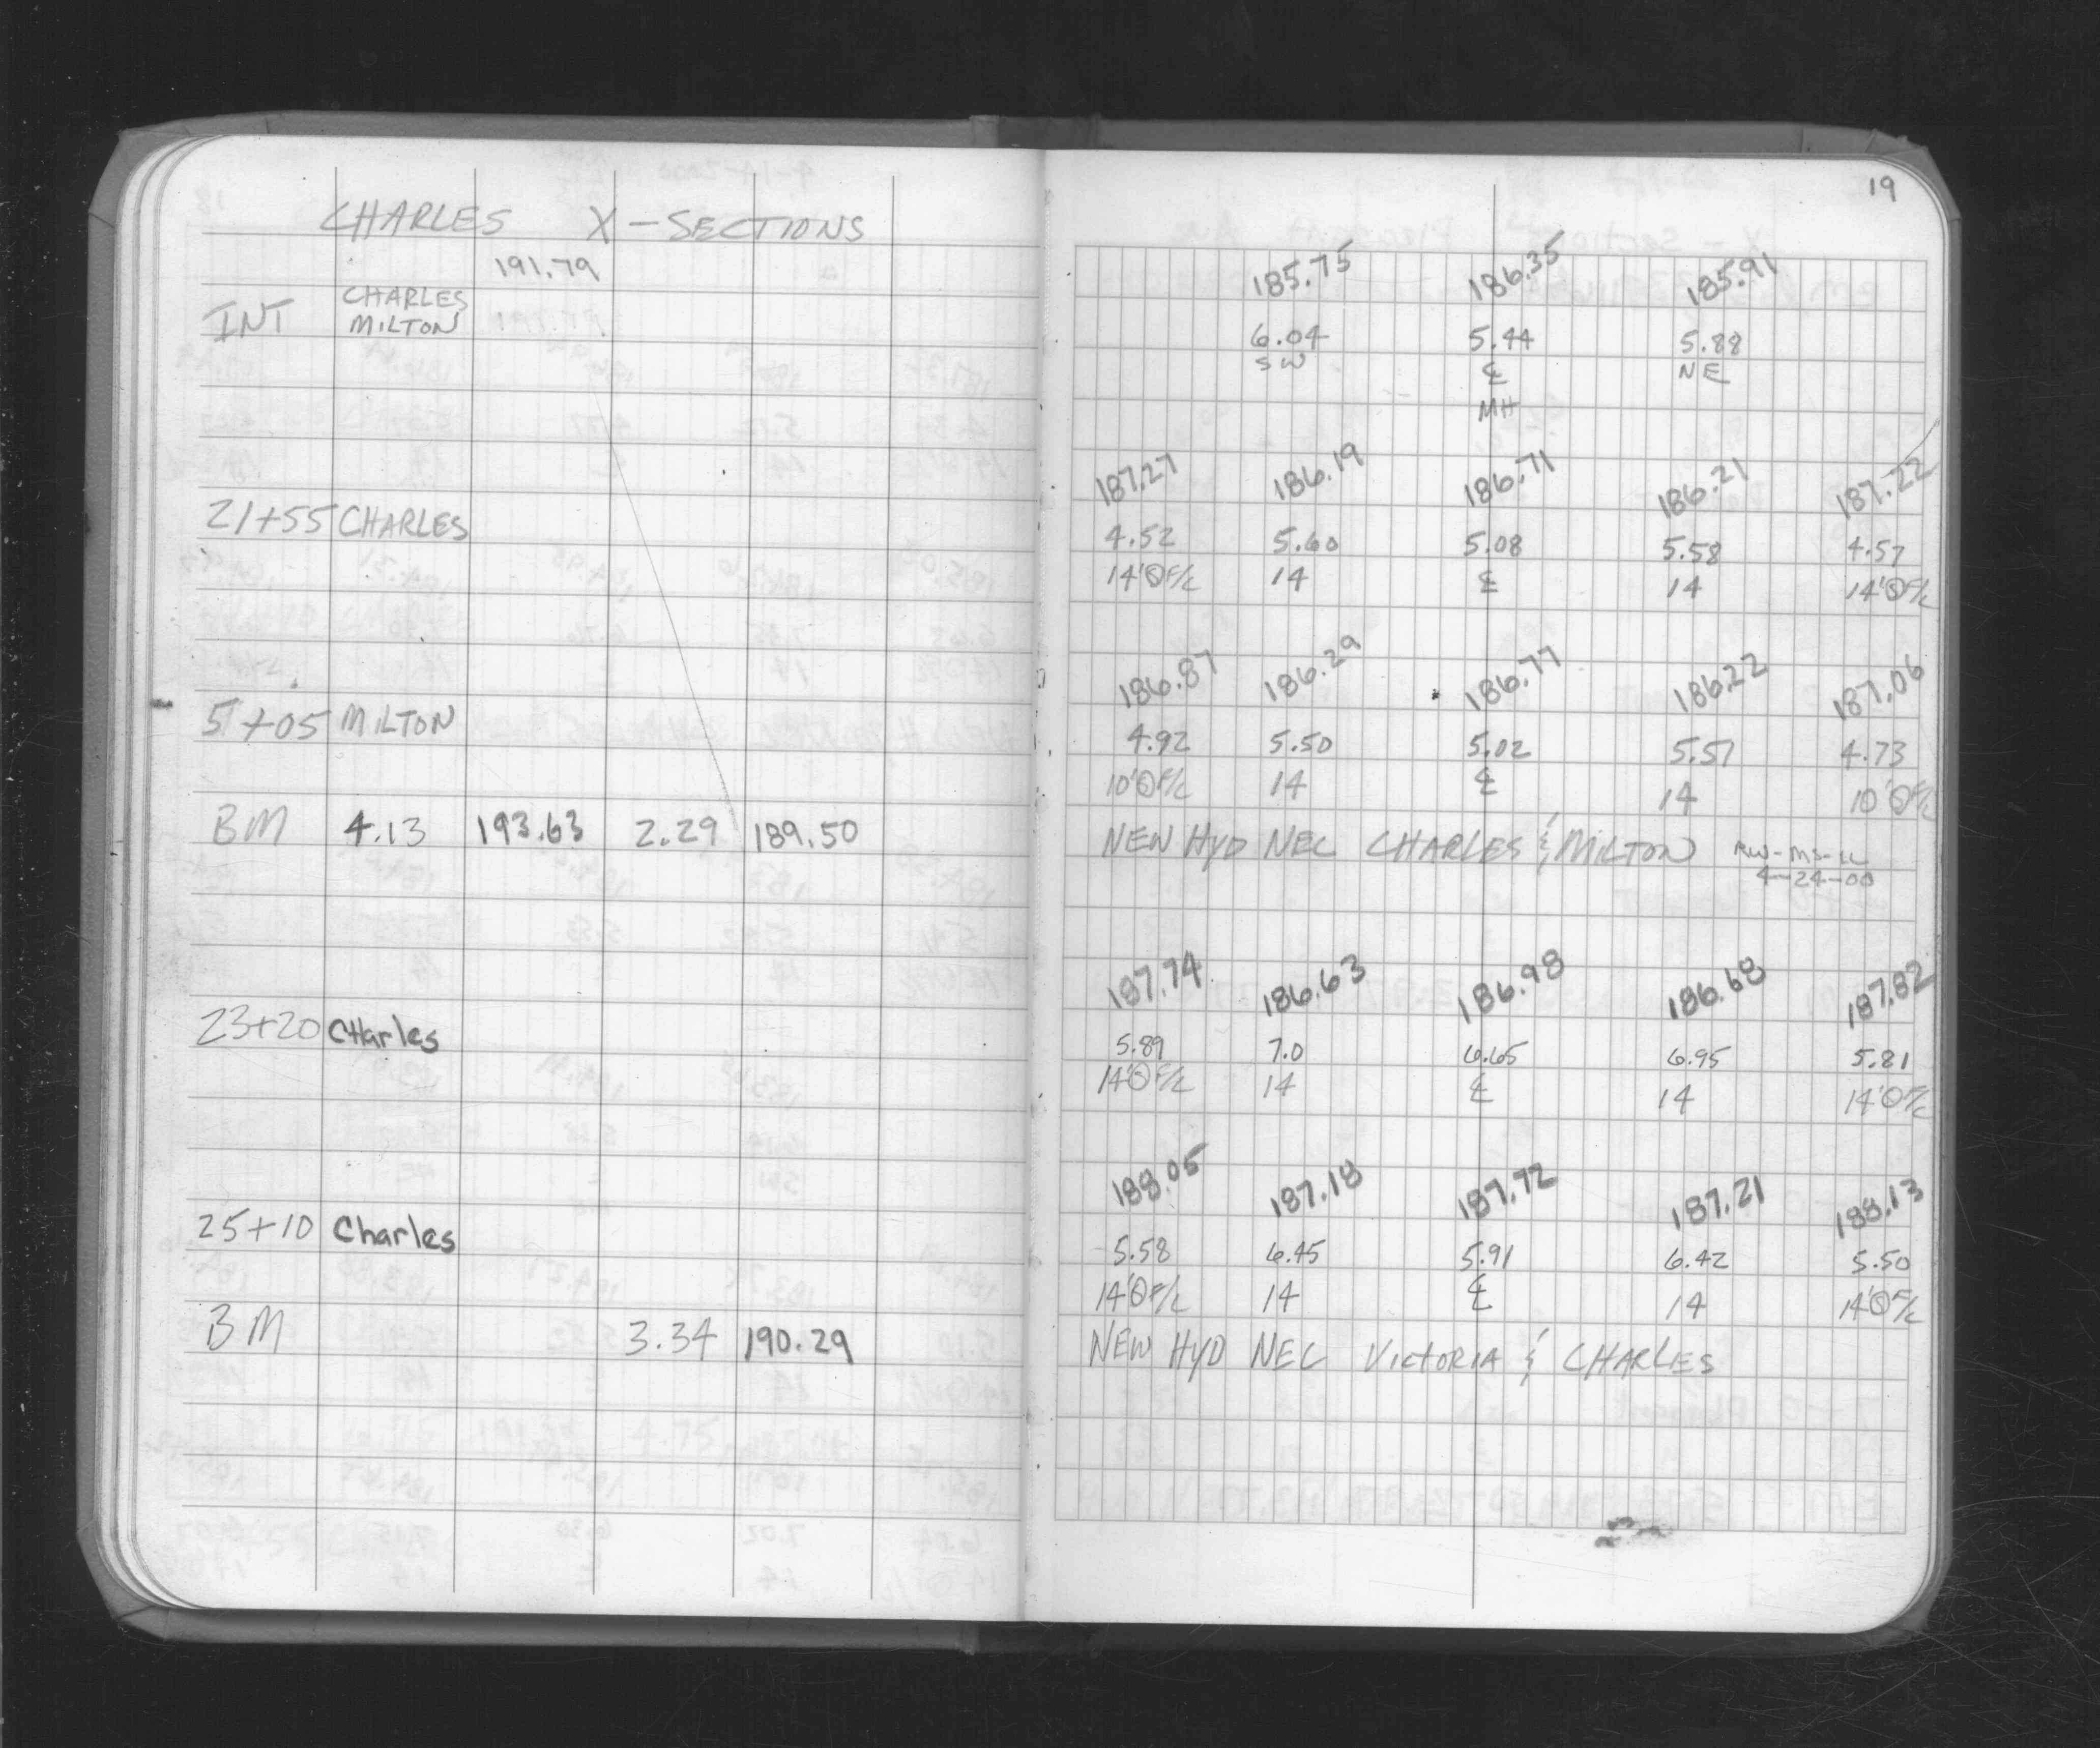 19
CHARLES X-SECTIONS
191.79
INT CHARLES
MILTON
185.75 186.35 185.91
6.04 5.44 5.88
SW ℄ NE
MH
187.27 186.19 186.71 186.21 187.22
21+55 CHARLES
4.52 5.60 5.08 5.58 4.57
14'⊙F/L 14 ℄ 14 14'⊙F/L
186.87 186.29 186.77 186.22 187.06
51+05 MILTON
4.92 5.50 5.02 5.57 4.73
10'⊙F/L 14 ℄ 14 10'⊙F/L
BM 4.13 193.63 2.29 189.50 NEW HYD NEC CHARLES & MILTON
4-24-00
187.74 186.63 186.98 186.68 187.82
23+20 CHarles
5.89 7.0 6.65 6.95 5.81
14'⊙F/L 14 ℄ 14 14'⊙F/L
188.05 187.18 187.72 187.21 188.13
25+10 Charles
5.58 6.45 5.91 6.42 5.50
14'⊙F/L 14 ℄ 14 14'⊙F/L
BM 3.34 190.29 NEW HYD NEC VICTORIA & CHARLES